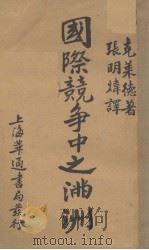 克萊德著
張明煒譯
國際競争中之滿洲
上海華通書局發行